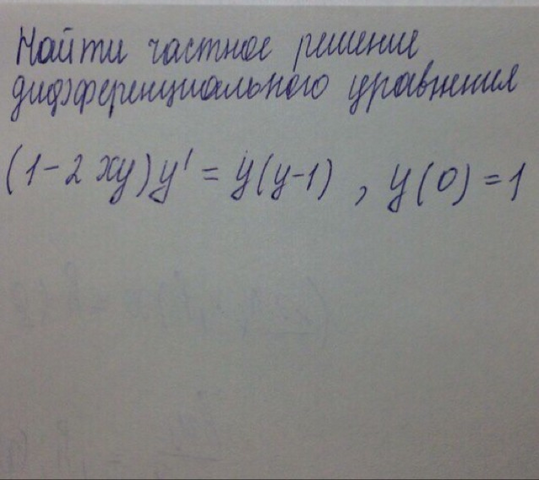 Найти частное решение
дифференциального уравнения
(1-2xy)y' = y(y-1), y(0)=1